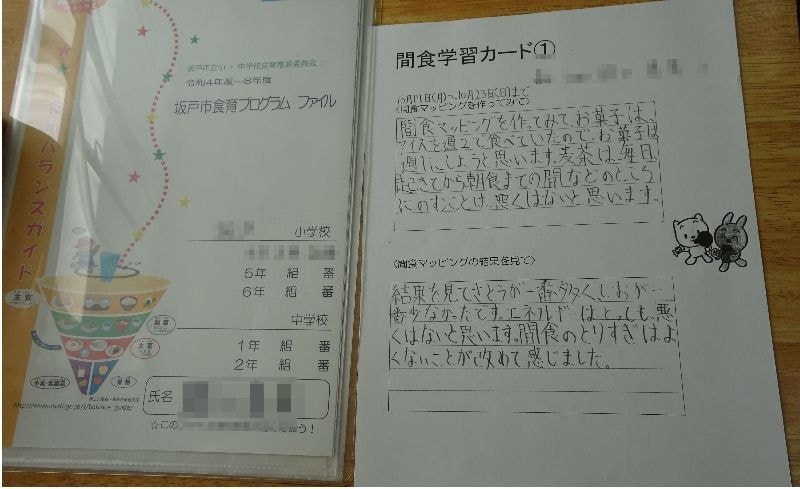 坂戸市立小・中学校食育推進委員会
令和4年度~8年度
坂戸市食育プログラム ファイル
小学校
5年 組 番
6年 組 番
中学校
1年 組 番
2年 組 番
氏名
☆この
う!
バランスガイド
主食
副菜
主菜
牛乳・乳製品
果物
http://www.maff.go.jp/j/balance_guide/
間食学習カード①
10月17日(月)~10月23日(日)まで
〈間食マッピングを作ってみて〉
間食マッピングを作ってみて、お菓子は、
アイスを週2で食べていたので、お菓子は
週1にしようと思います。麦茶は毎日
起きてから朝食までの間などのところ
にのすことは、悪くはないと思います。
〈間食マッピングの結果を見て〉
結果を見てさとうが一番多くしおが一
番少なかたです。エネルギーはとっても悪
くはないと思います。間食のとりすぎは、よ
くないことが改めて感じました。